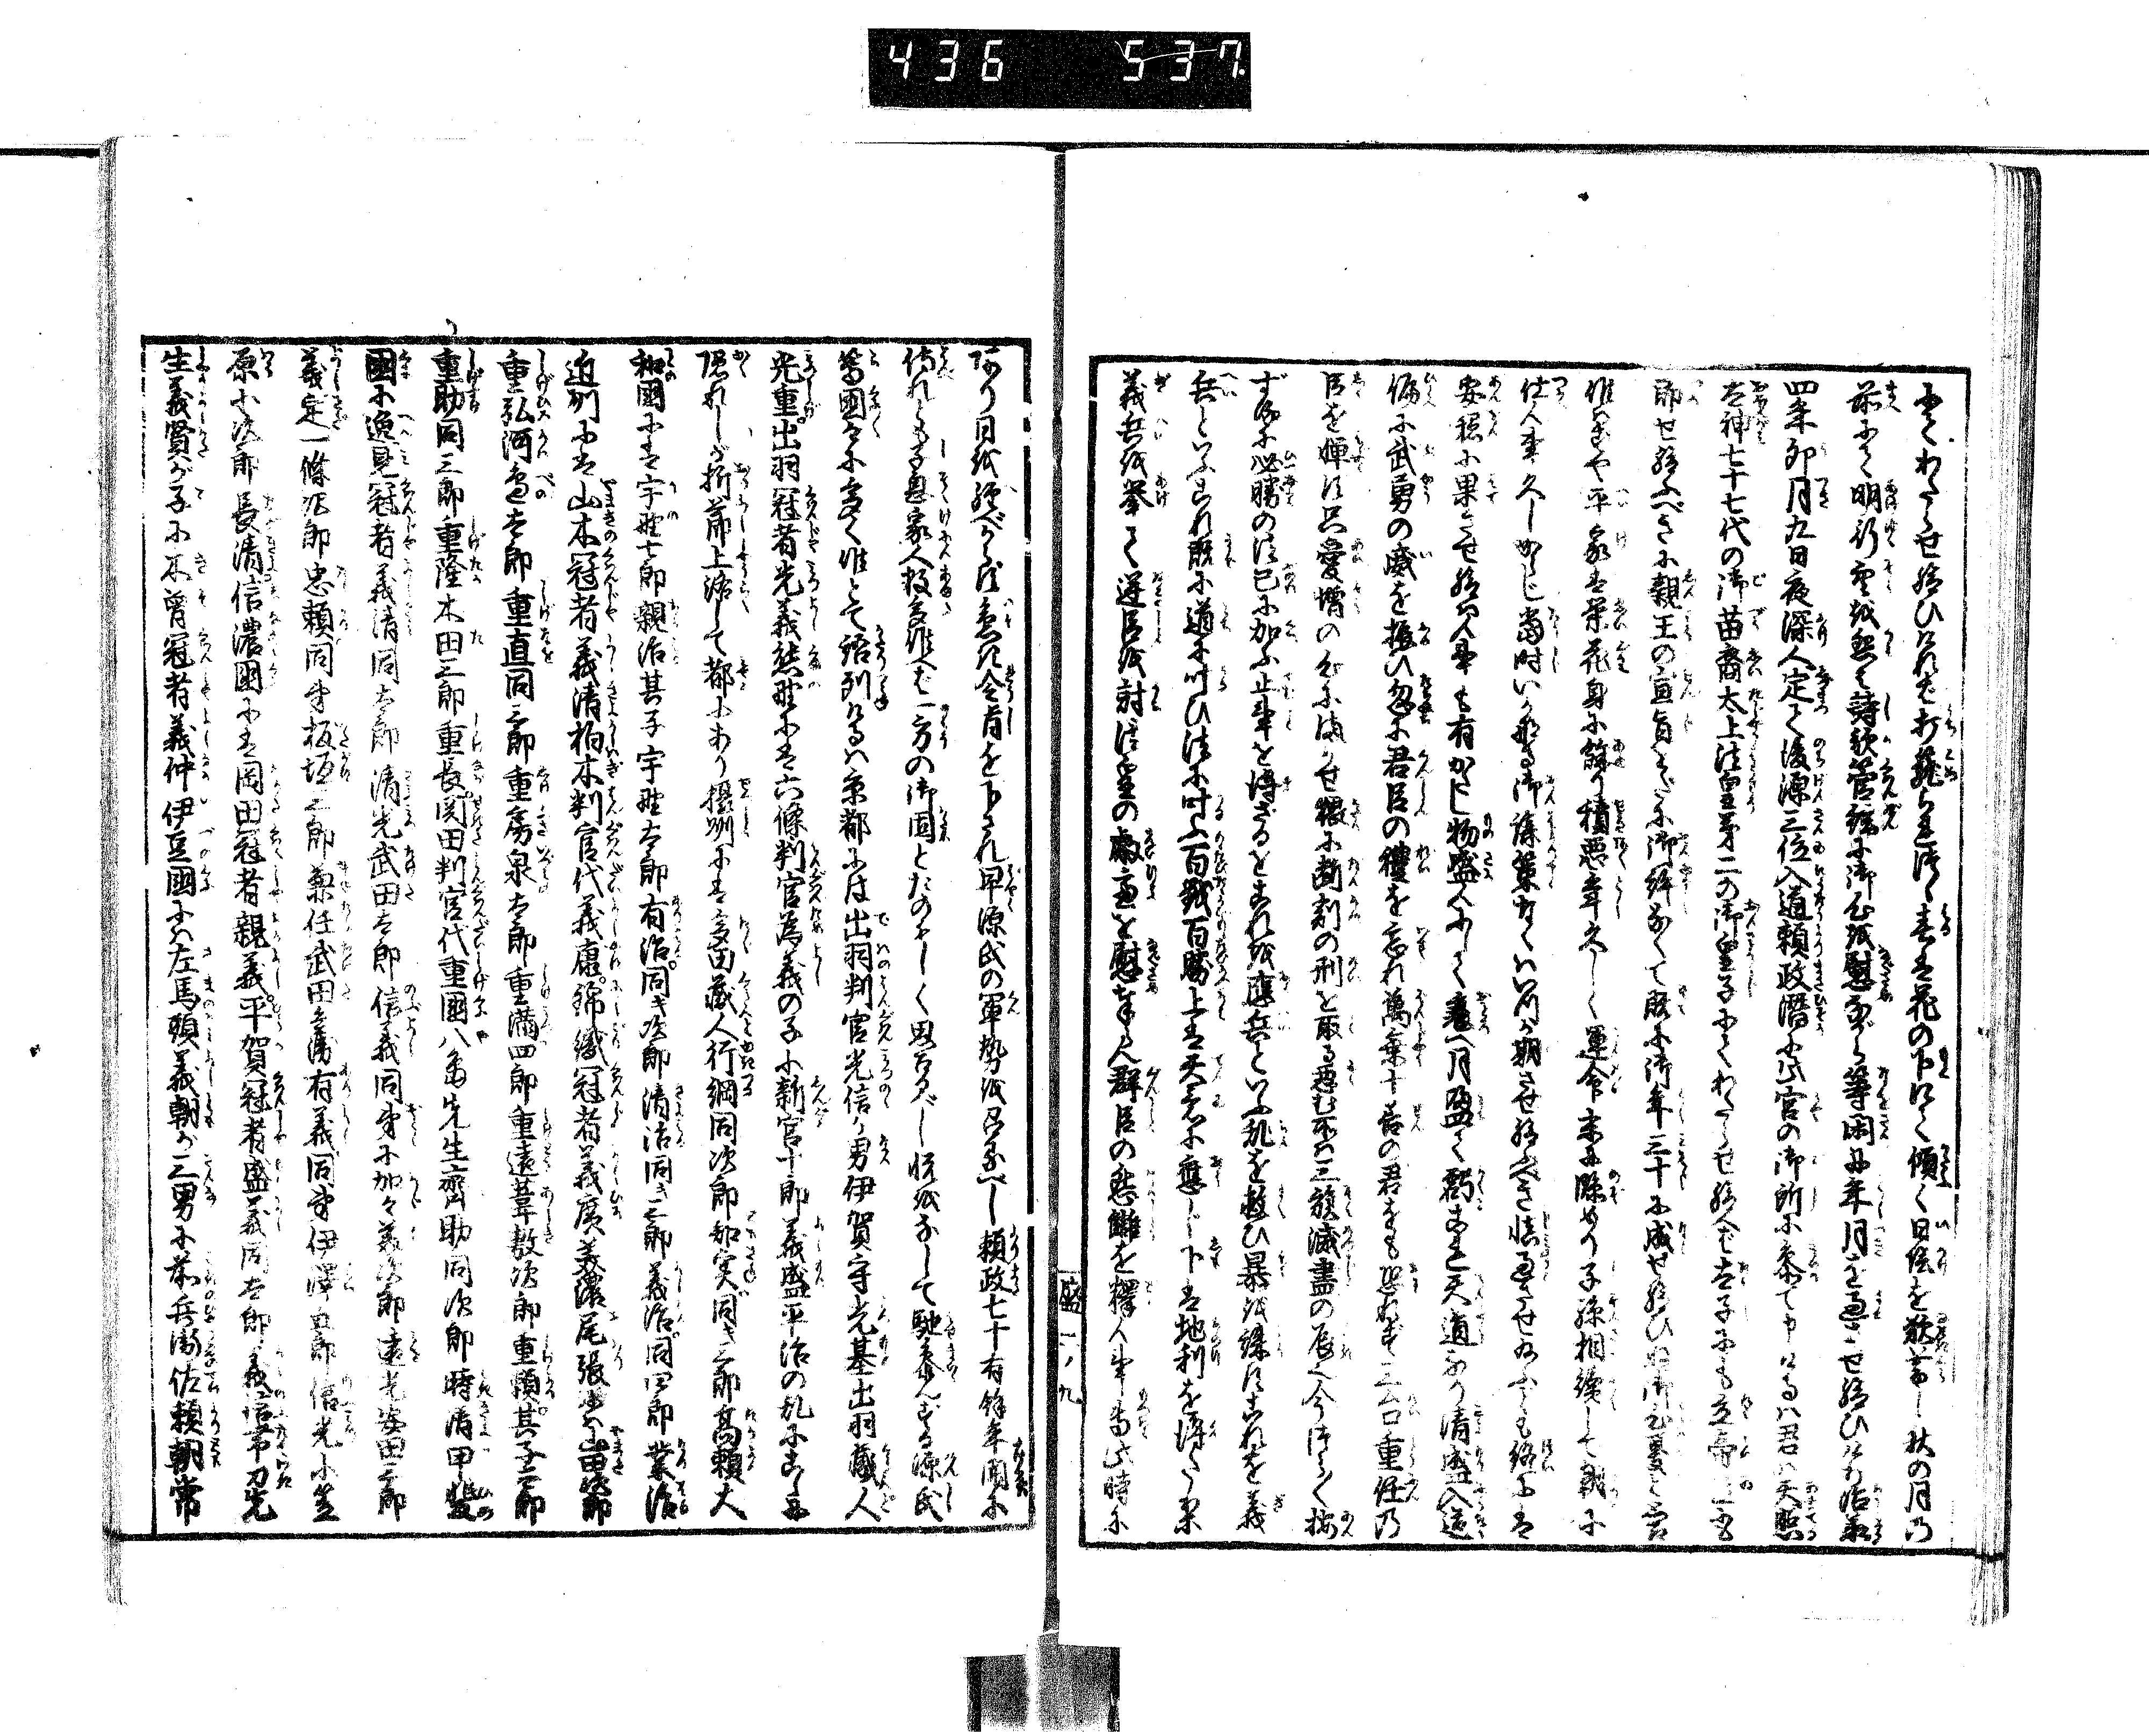 436 537
てわたらせ給ひければ打籠られ給て春は花の下にて傾く日陰を歎暮し秋の月の
前にて明行空を怨て詩歌管絃に御心を慰めつゝ等閑に年月を過させ給ひける治承
四年卯月九日夜深人定て後源三位入道頼政潜に此宮の御所に参て申けるは君は天照
太神七十七代の御苗裔太上法皇第二の御皇子にてわたらせ給へば太子にも立帝
即せ給ふべきに親王の宣旨をだに御許なくて既に御年三十に成せ給ひぬ御心憂
平家は栄花身に餘り積悪年久しく運命末に臨めり子孫相継して朝に
仕人事久しからじ當時いかなる御謀策なくはいつを期させ給べき慎過させ給ふとも終には
安穏に果させ給はん事も有がたし物盛にして衰月盈て虧是天道なり清盛入道
偏に武勇の威を振ひ忽に君臣の禮を忘れ萬乗十善の君をも恐れず三台重任の
臣を憚らず只愛憎の心に任せ猥に断割の刑を取る悪む所は三族滅盡の辰へ今つら〳〵按
ずるに必勝の法已に加ふ止事を得ざるをこれを應兵といふ乱を救ひ暴を誅するこれを義
兵といふこれ既に道に叶ひ法に叶ふ百戦百勝上は天意に應じ下は地利を得たり
義兵を挙て逆臣を討法皇の叡慮を慰奉り群臣の愁讎を擇ん事當此時に
盛 一ノ九
あり日を經べからず急ぎ令旨を下され早源氏の軍勢を召るべし頼政七十有餘年闌に
侍れども子息家人数多候へば一方の御固とたのもしく思召べし悦をなして馳参んずる源氏
等國々に多く候とて語列けるは京都には出羽判官光信が男伊賀守光基出羽蔵人
光重出羽冠者光義熊野には六條判官為義の子に新宮十郎義盛平治の乱に
隠れしが折節上洛して都にあり攝州には多田蔵人行綱同次郎知実同き三郎高頼大
和國には宇野七郎親治其子宇野太郎有治同き次郎清治同き三郎義治同四郎業治
近州には山本冠者義清柏木判官代義康錦織冠者義廣美濃尾張には山田次郎
重弘河邊太郎重直同三郎重房泉太郎重満四郎重遠葦敷次郎重頼其子三郎
重助同三郎重隆木田三郎重長関田判官代重國八島先生齊助同次郎時清甲斐
國に逸見冠者義清同太郎清光武田太郎信義同弟に加々美次郎遠光安田三郎
義定一條次郎忠頼同弟板垣三郎兼任武田兵衛有義同弟伊澤五郎信光小笠
原小次郎長清信濃國には岡田冠者親義平賀冠者盛義同太郎義信帯刀先
生義賢が子に木曾冠者義仲伊豆國には左馬頭義朝が三男に前兵衛佐頼朝常